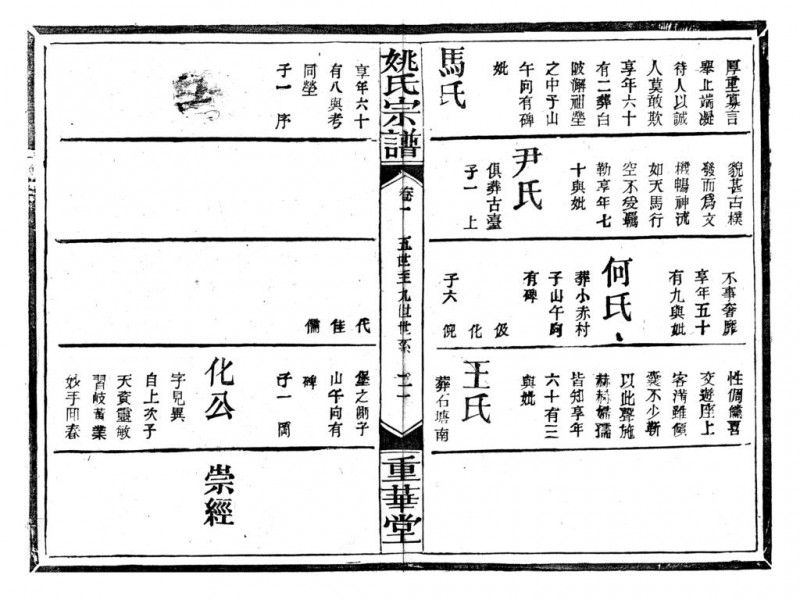 厚重寡言
舉止端凝
待人以誠
人莫敢欺
享年六十
有二葬白
陂懈祖塋
之中子山
午向有碑
妣
馬氏
貌甚古樸
發而爲文
機暢神流
如天馬行
空不受羈
勒享年七
十與妣
尹氏
俱葬古臺
子一 上
不事奢靡
享年五十
有九與妣
何氏
葬小赤村
子山午向
有碑
伋
化
子六 倪
性倜儻喜
交遊座上
客滿雖傾
囊不少靳
以此聲施
赫赫婦孺
皆知享年
六十有三
與妣
王氏
葬石塘南
姚氏宗譜
卷一 五世至九世世系
重華堂
享年六十
有八與考
同塋
子一 序
代
佳
儒
堡之側子
山午向有
碑
子一 岡
化公
字見異
自上次子
天資靈敏
習岐黃業
妙手回春
崇經